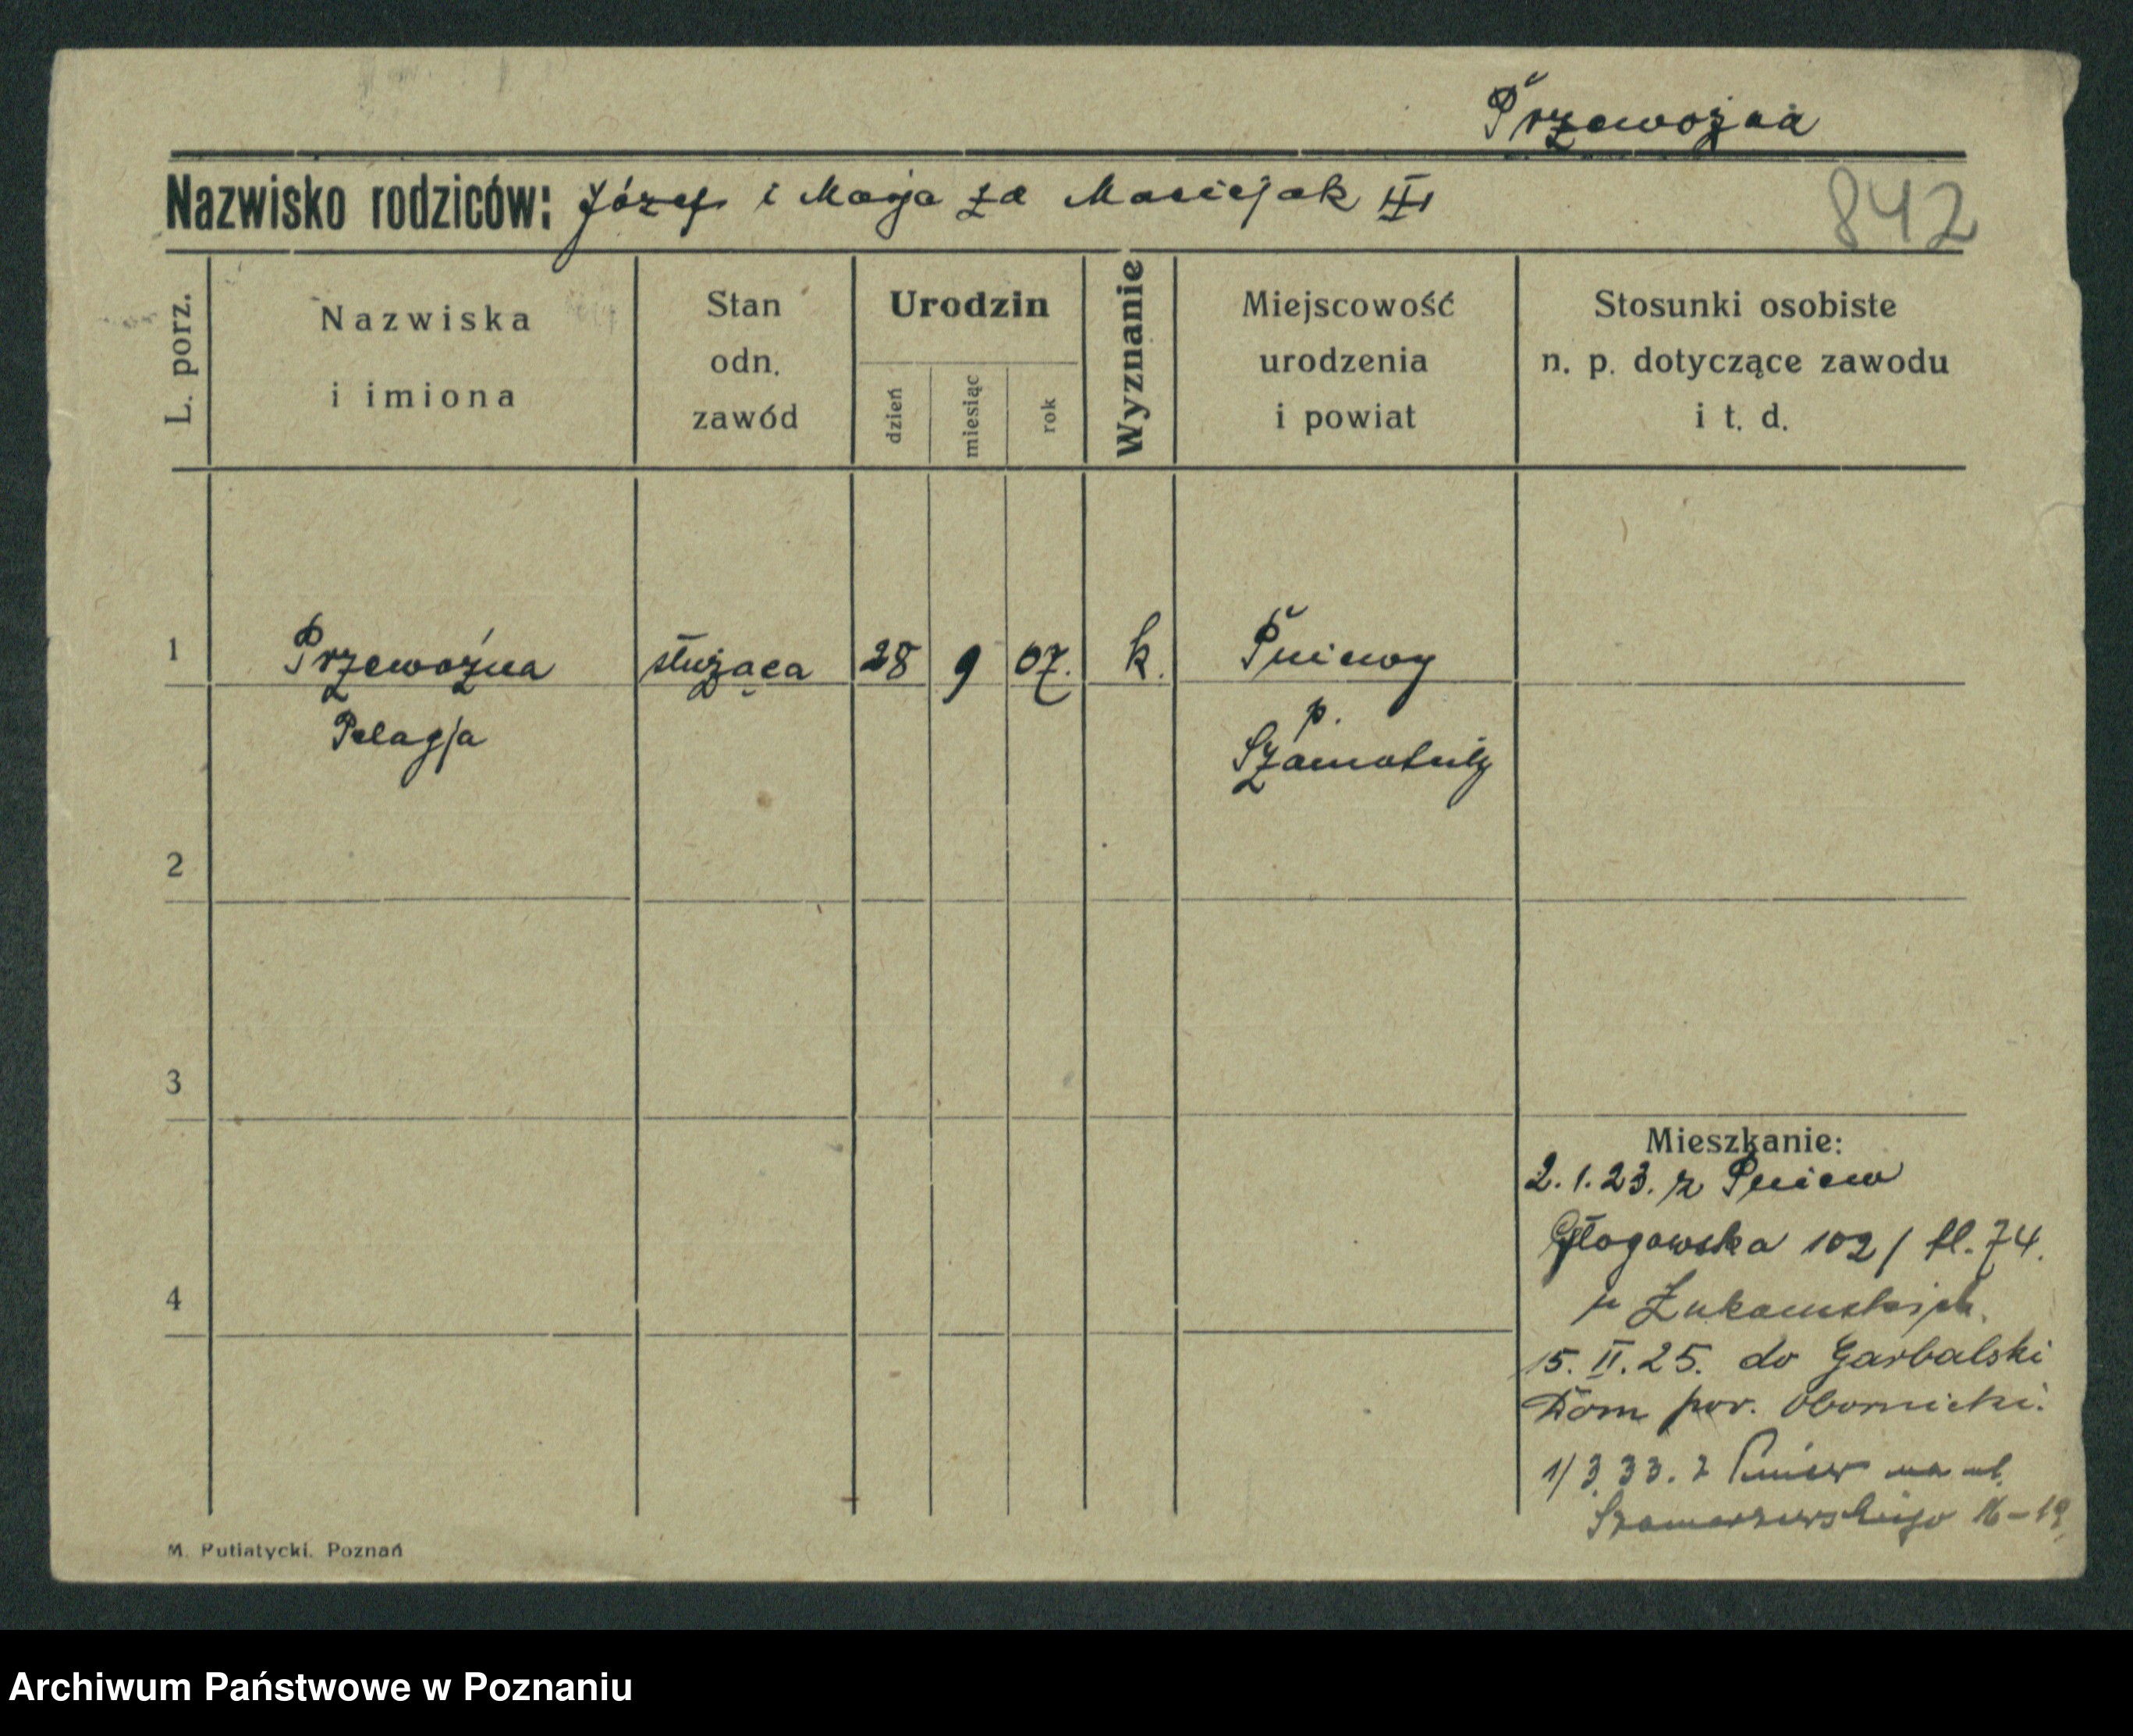 Przewoźna
Nazwisko rodziców: Józef i Marja za Maciejak III
842
L. porz.
Nazwiska
i imiona
Stan
odn.
zawód
Urodzin
dzień
miesiąc
rok
Wyznanie
Miejscowość
urodzenia
i powiat
Stosunki osobiste
n. p. dotyczące zawodu
i t. d.
1 Przewoźna służąca 28 9 07. k. Pniewy
Pelagja
p.
Szamotuły
2
3
4
Mieszkanie:
2.1.23. z Pniew
Głogowska 102/ fl. 74.
u Żukowskich.
15.II.25. do Garbalski
Dom pow. Obornicki.
1/3 33. z Pniew na ul.
Szamarzewskiego 16-19
M. Putiatycki. Poznań
Archiwum Państwowe w Poznaniu